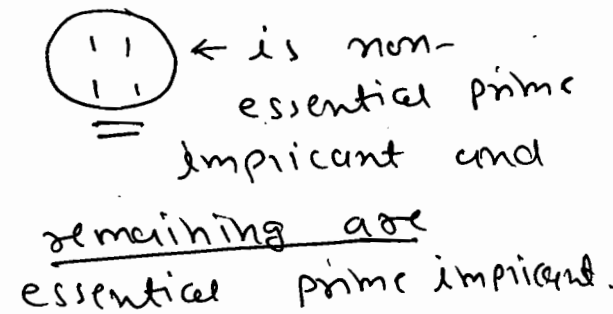 1 1 ← is non-
1 1 essential prime
impricant and
remaining are
essential prime impricant.